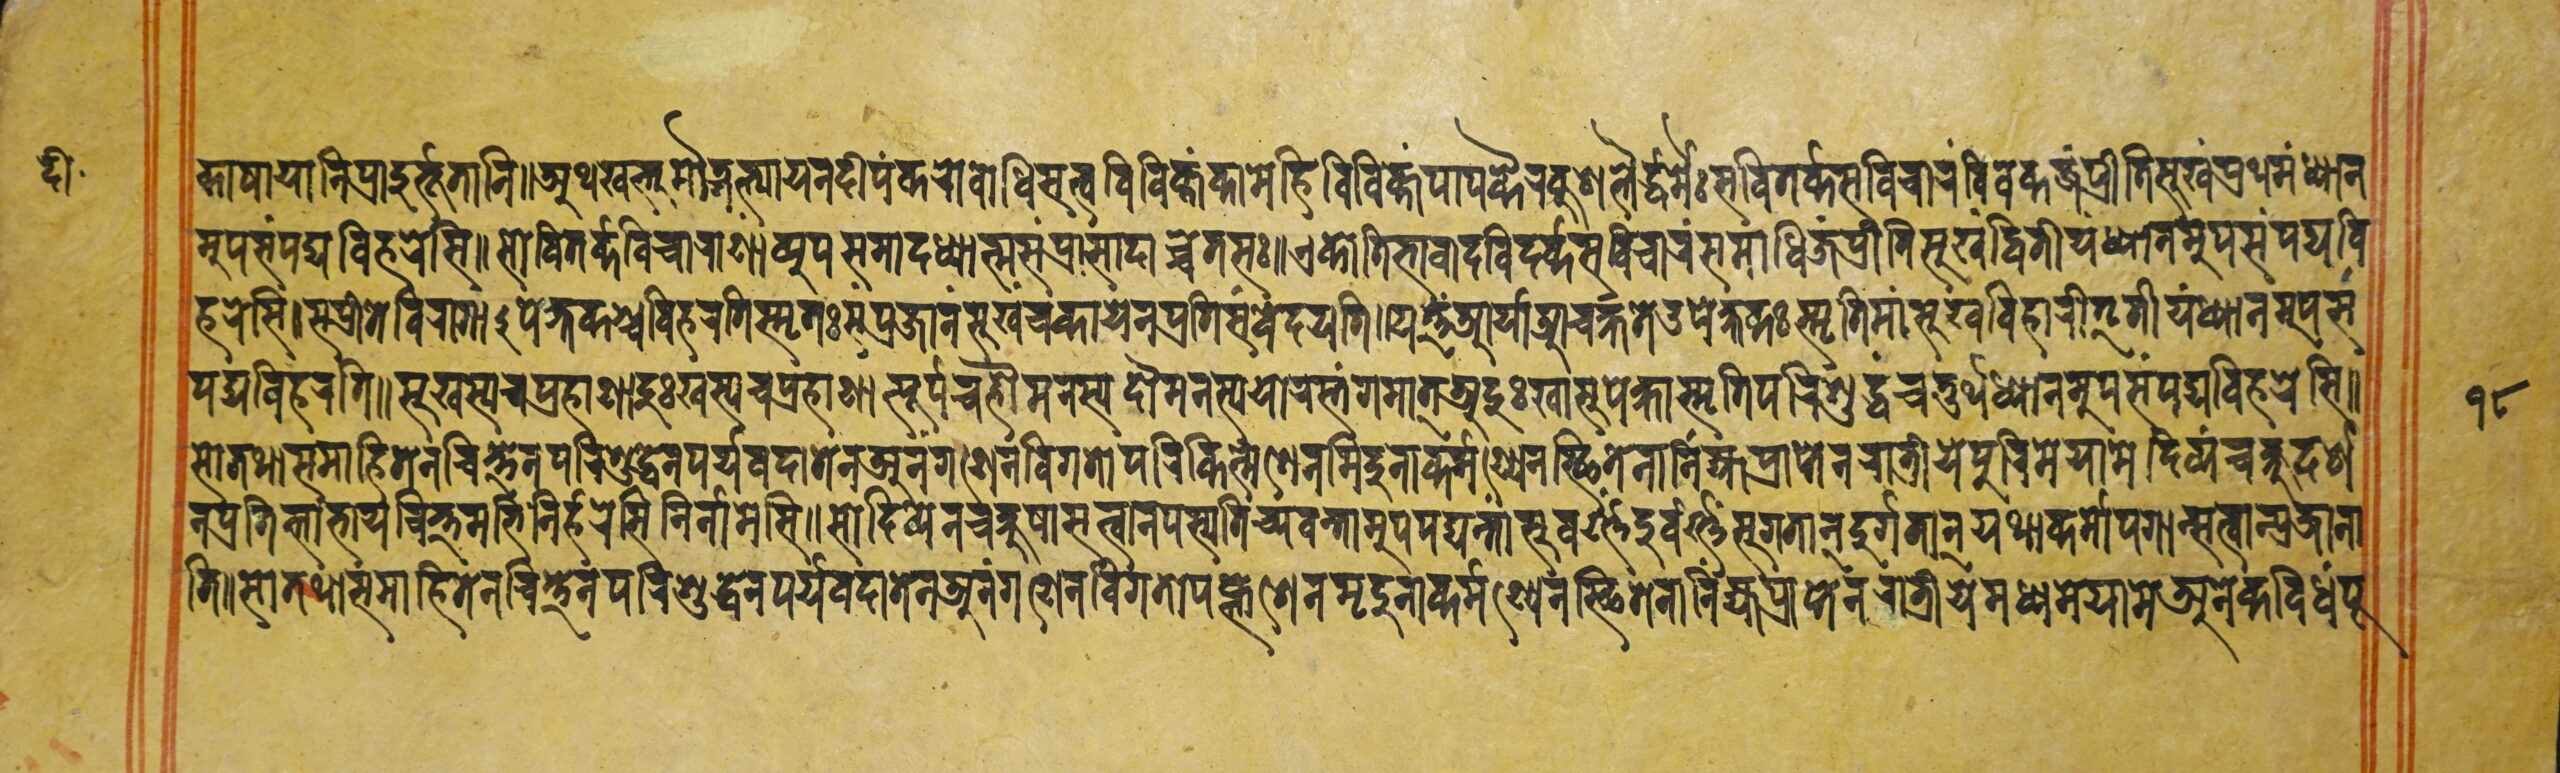 दी
काषायानिप्रादुर्भूतानि॥अथखलुमौद्गल्यायनदीपंकरोबोधिसत्वविविक्तंकामेहिविविक्तंपापकैरकुशलैर्द्धर्मैःसवितर्कसविचारंविवेकजंप्रीतिसुखंप्रथमंध्यान
मुपसंपद्यविहरेसि॥सोवितर्कविचाराणांव्युपसमादध्यात्मसंप्रासादाच्चेतसः॥एकोतिभावादविदर्कसविचारंसमाधिजंप्रीतिसुखंद्वितीयंध्यानमुपसंपद्यवि
हरेसि।सप्रीतेविरागाउपेक्षकश्चविहरतिस्मृतःसंप्रजानंसुखंचकायेनप्रतिसंवेदयति॥यत्तंआर्याआचक्षतेउपेक्षकःस्मृतिमांसुखविहारीतृतीयंध्यानमुपसं
पद्यविहरति॥सुखस्यचप्रहाणाद्दुःखस्यचप्रहाणात्पूर्पचसौमनस्यदौमनस्ययोरस्तंगमात्अदुःखासुपेक्षास्मृतिपरिशुद्धंचतुर्थध्यानमुपसंपद्यविहरेसि॥
१८
सोतथासमाहितेनचित्तेनपरिशुद्धेनपर्यवदातेनअनंगणेनविगतोपरिकिल्मेशेनमिदुनाकर्मण्येनस्थितेनानिंज्यप्राप्तेनरात्रीयेपुरिमेयामेदिव्यंचक्षुदर्श
नप्रतिलाभायचित्तमभिनिर्हरेसिनिर्नामेसि॥सोदिव्येनचक्षुषासत्वानपस्यतिच्यवन्तामुपपद्यन्तांसुवर्ण्णंदुवर्ण्णंसुगतान्दुर्गतान्यथाकर्मोपगान्सत्वान्प्रजाना
ति॥सोतथासमाहितेनचित्तेनपरिशुद्धेनपर्यवदातेनअनंगणेनविगतोपक्लेशेनमृदुनाकर्मण्येनस्थितेनानिंज्यप्राप्तेनरात्रीयेमध्यमेयामेअनेकविधंपू